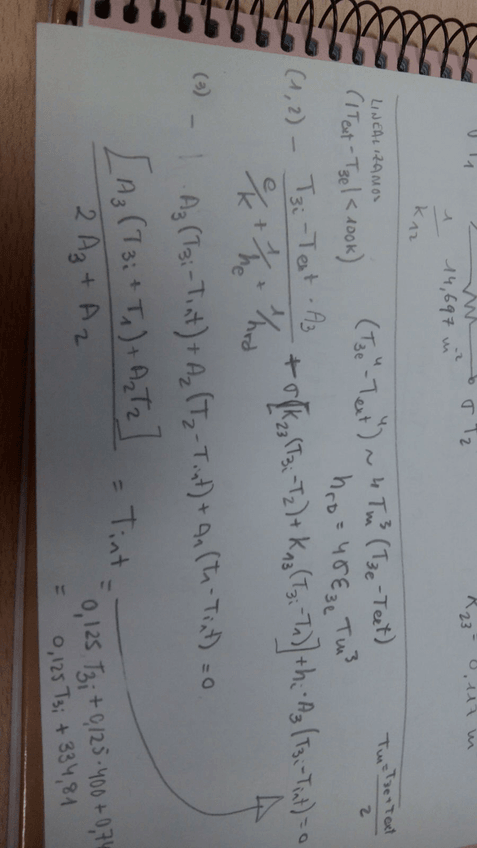 T₁
1/K₁₂
14,697 m⁻²
σ T₂
K₂₃ = 0,117 m
LINEALIZAMOS
(|Text - T3e| < 100K)
(T3e⁴ - Text⁴) ~ 4 Tm³ (T3e - Text)
Tm = (T3e + Text)/2
hrD = 4σε3e Tm³
(1,2) - (T3i - Text · A3)/(e/k + 1/he + 1/hrd) + σ[K23(T3i - T2) + K13(T3i - T1)] + hi · A3(T3i - Tint) = 0
(3) - · A3(T3i - Tint) + A2(T2 - Tint) + A1(T1 - Tint) = 0
[A3(T3i + T1) + A2T2]/(2A3 + A2) = Tint = 0,125 T3i + 0,125·400 + 0,74
= 0,125 T3i + 334,81